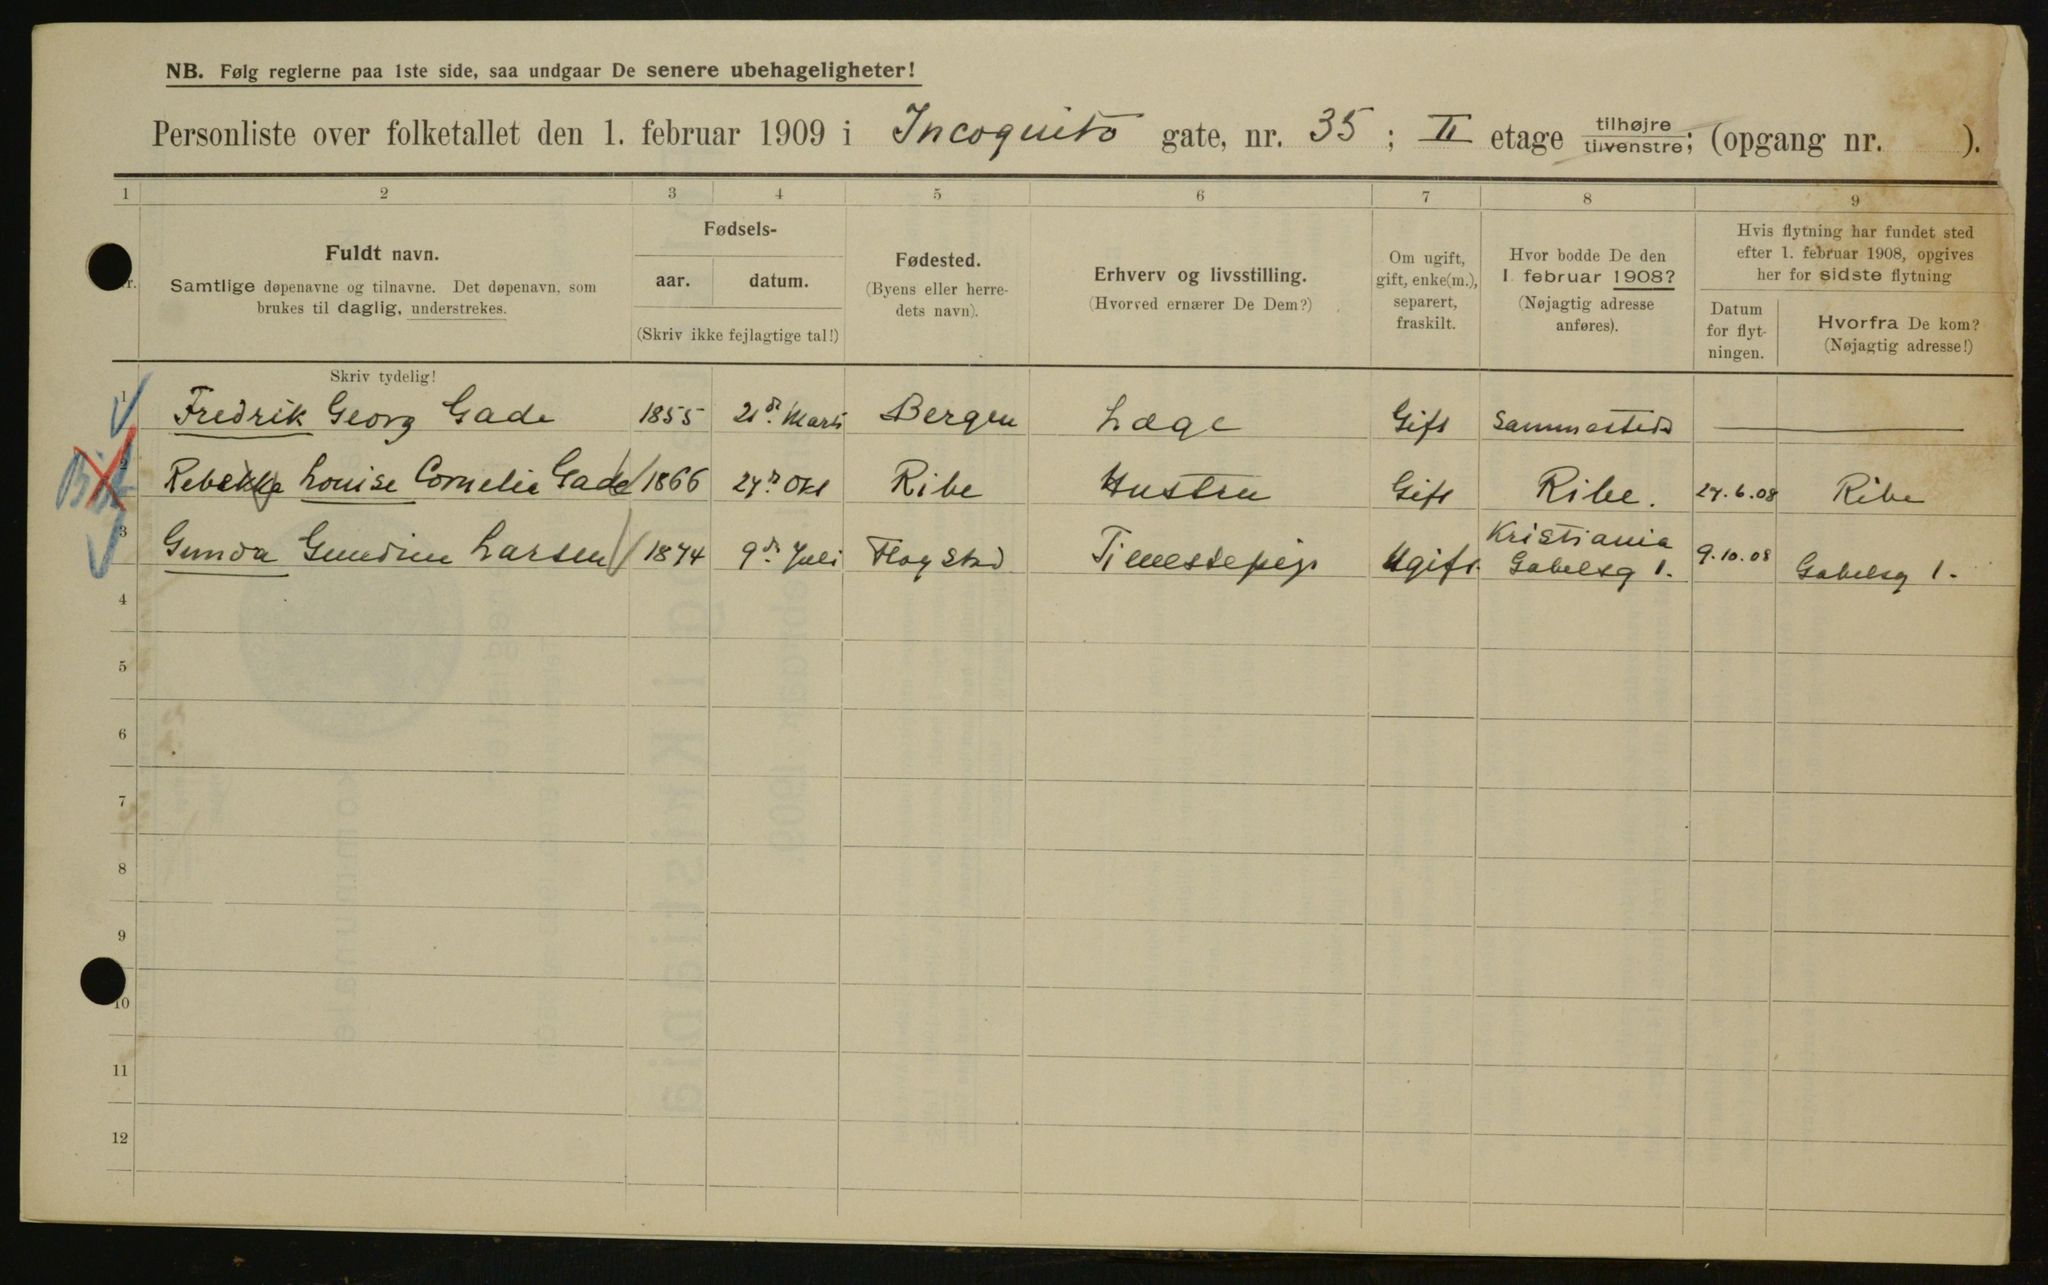 NB. Følg reglerne paa 1ste side, saa undgaar De senere ubehageligheter!
Personliste over folketallet den 1. februar 1909 i Incoquito gate, nr. 35 ; II etage tilhøjre tilvenstre; (opgang nr. ).
1 2 3 4 5 6 7 8 9
Fuldt navn.
Samtlige døpenavne og tilnavne. Det døpenavn, som
brukes til daglig, understrekes.
Fødsels-
aar. datum.
(Skriv ikke fejlagtige tal!)
Fødested.
(Byens eller herre-
dets navn).
Erhverv og livsstilling.
(Hvorved ernærer De Dem?)
Om ugift,
gift, enke(m.),
separert,
fraskilt.
Hvor bodde De den
1. februar 1908?
(Nøjagtig adresse
anføres).
Hvis flytning har fundet sted
efter 1. februar 1908, opgives
her for sidste flytning
Datum
for flyt-
ningen.
Hvorfra De kom?
(Nøjagtig adresse!)
Skriv tydelig!
1 Fredrik Georg Gade 1855 21de Marts Bergen Læge Gift Sammesteds
2 Rebekka Louise Cornelie Gade 1866 27de Okt Ribe Hustru Gift Ribe. 27.6.08 Ribe
3 Gunda Gundine Larsen 1874 9de Juli Flagstad Tjenestepige Ugift Kristiania
Gabelsg 1. 9.10.08 Gabelsg 1.
4
5
6
7
8
9
10
11
12